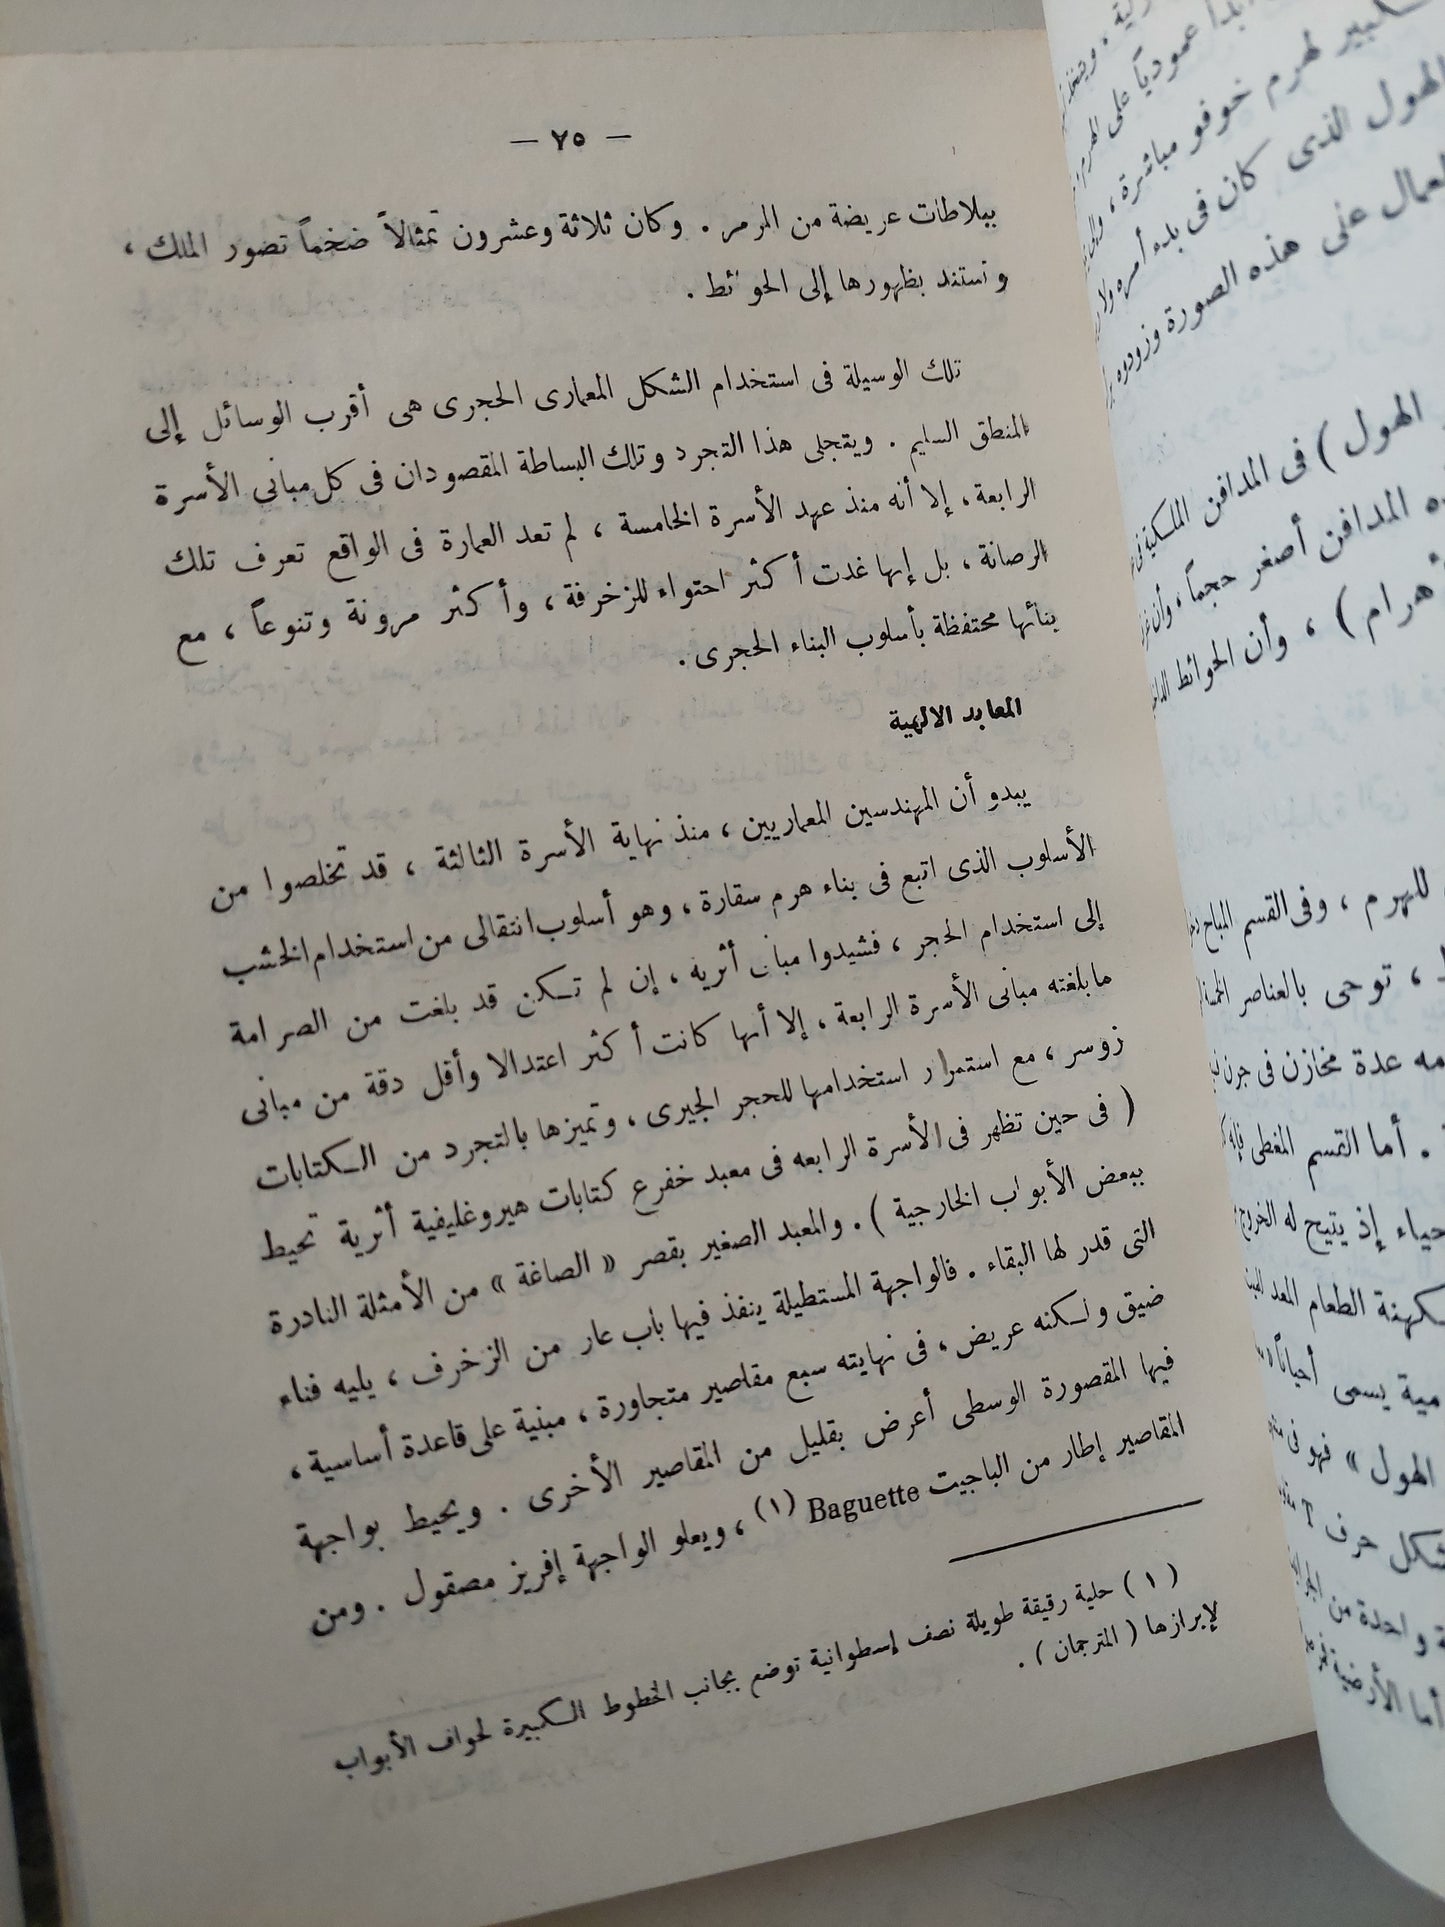 — ٧٥ —
ببلاطات عريضة من المرمر . وكان ثلاثة وعشرون تمثالاً ضخماً تصور الملك ،
وتستند بظهورها إلى الحوائط .
تلك الوسيلة فى استخدام الشكل المعمارى الحجرى هى أقرب الوسائل إلى
المنطق السليم . ويتجلى هذا التجرد وتلك البساطة المقصودان فى كل مبانى الأسرة
الرابعة ، إلا أنه منذ عهد الأسرة الخامسة ، لم تعد العمارة فى الواقع تعرف تلك
الرصانة ، بل إنها غدت أكثر احتواء للزخرفة ، وأكثر مرونة وتنوعاً ، مع
بنائها محتفظة بأسلوب البناء الحجرى .
المعابد الالهية
يبدو أن المهندسين المعماريين ، منذ نهاية الأسرة الثالثة ، قد تخلصوا من
الأسلوب الذى اتبع فى بناء هرم سقارة ، وهو أسلوب انتقالى من استخدام الخشب
إلى استخدام الحجر ، فشيدوا مبان أثرية ، إن لم تكن قد بلغت من الصرامة
ما بلغته مبانى الأسرة الرابعة ، إلا أنها كانت أكثر اعتدالا وأقل دقة من مبانى
زوسر ، مع استمرار استخدامها للحجر الجيرى ، وتميزها بالتجرد من الكتابات
( فى حين تظهر فى الأسرة الرابعه فى معبد خفرع كتابات هيروغليفية أثرية تحيط
ببعض الأبواب الخارجية ) . والمعبد الصغير بقصر « الصاغة » من الأمثلة النادرة
التى قدر لها البقاء . فالواجهة المستطيلة ينفذ فيها باب عار من الزخرف ، يليه فناء
ضيق ولكنه عريض ، فى نهايته سبع مقاصير متجاورة ، مبنية على قاعدة أساسية ،
فيها المقصورة الوسطى أعرض بقليل من المقاصير الأخرى . ويحيط بواجهة
المقاصير إطار من الباجيت Baguette (١) ، ويعلو الواجهة إفريز مصقول . ومن
( ١ ) حلية رقيقة طويلة نصف إسطوانية توضع بجانب الخطوط الكبيرة لحواف الأبواب
لإبرازها ( المترجمان ) .
أبداً عمودياً على الهرم
لهرم خوفو مباشرة ،
الهول الذى كان فى بدء أمره
على هذه الصورة وزودوه
الهول ) فى المدافن الملكية
المدافن أصغر حجماً ، وأن
، وأن الحوائط
للهرم ، وفى القسم المباح
، توحى بالعناصر
عدة مخازن فى
. أما القسم المغطى فإنه
إذ يتيح له الخروج
الطعام المعد
يسمى أحياناً
الهول » فهو فى
حرف T
واحدة من
أما الأرضية